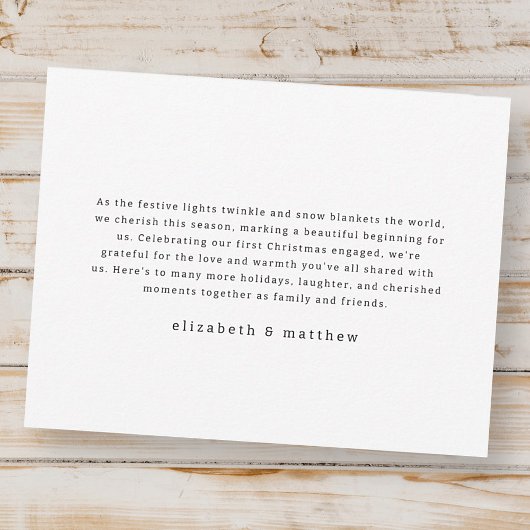 As the festive lights twinkle and snow blankets the world,
we cherish this season, marking a beautiful beginning for
us. Celebrating our first Christmas engaged, we're
grateful for the love and warmth you've all shared with
us. Here's to many more holidays, laughter, and cherished
moments together as family and friends.
elizabeth & matthew